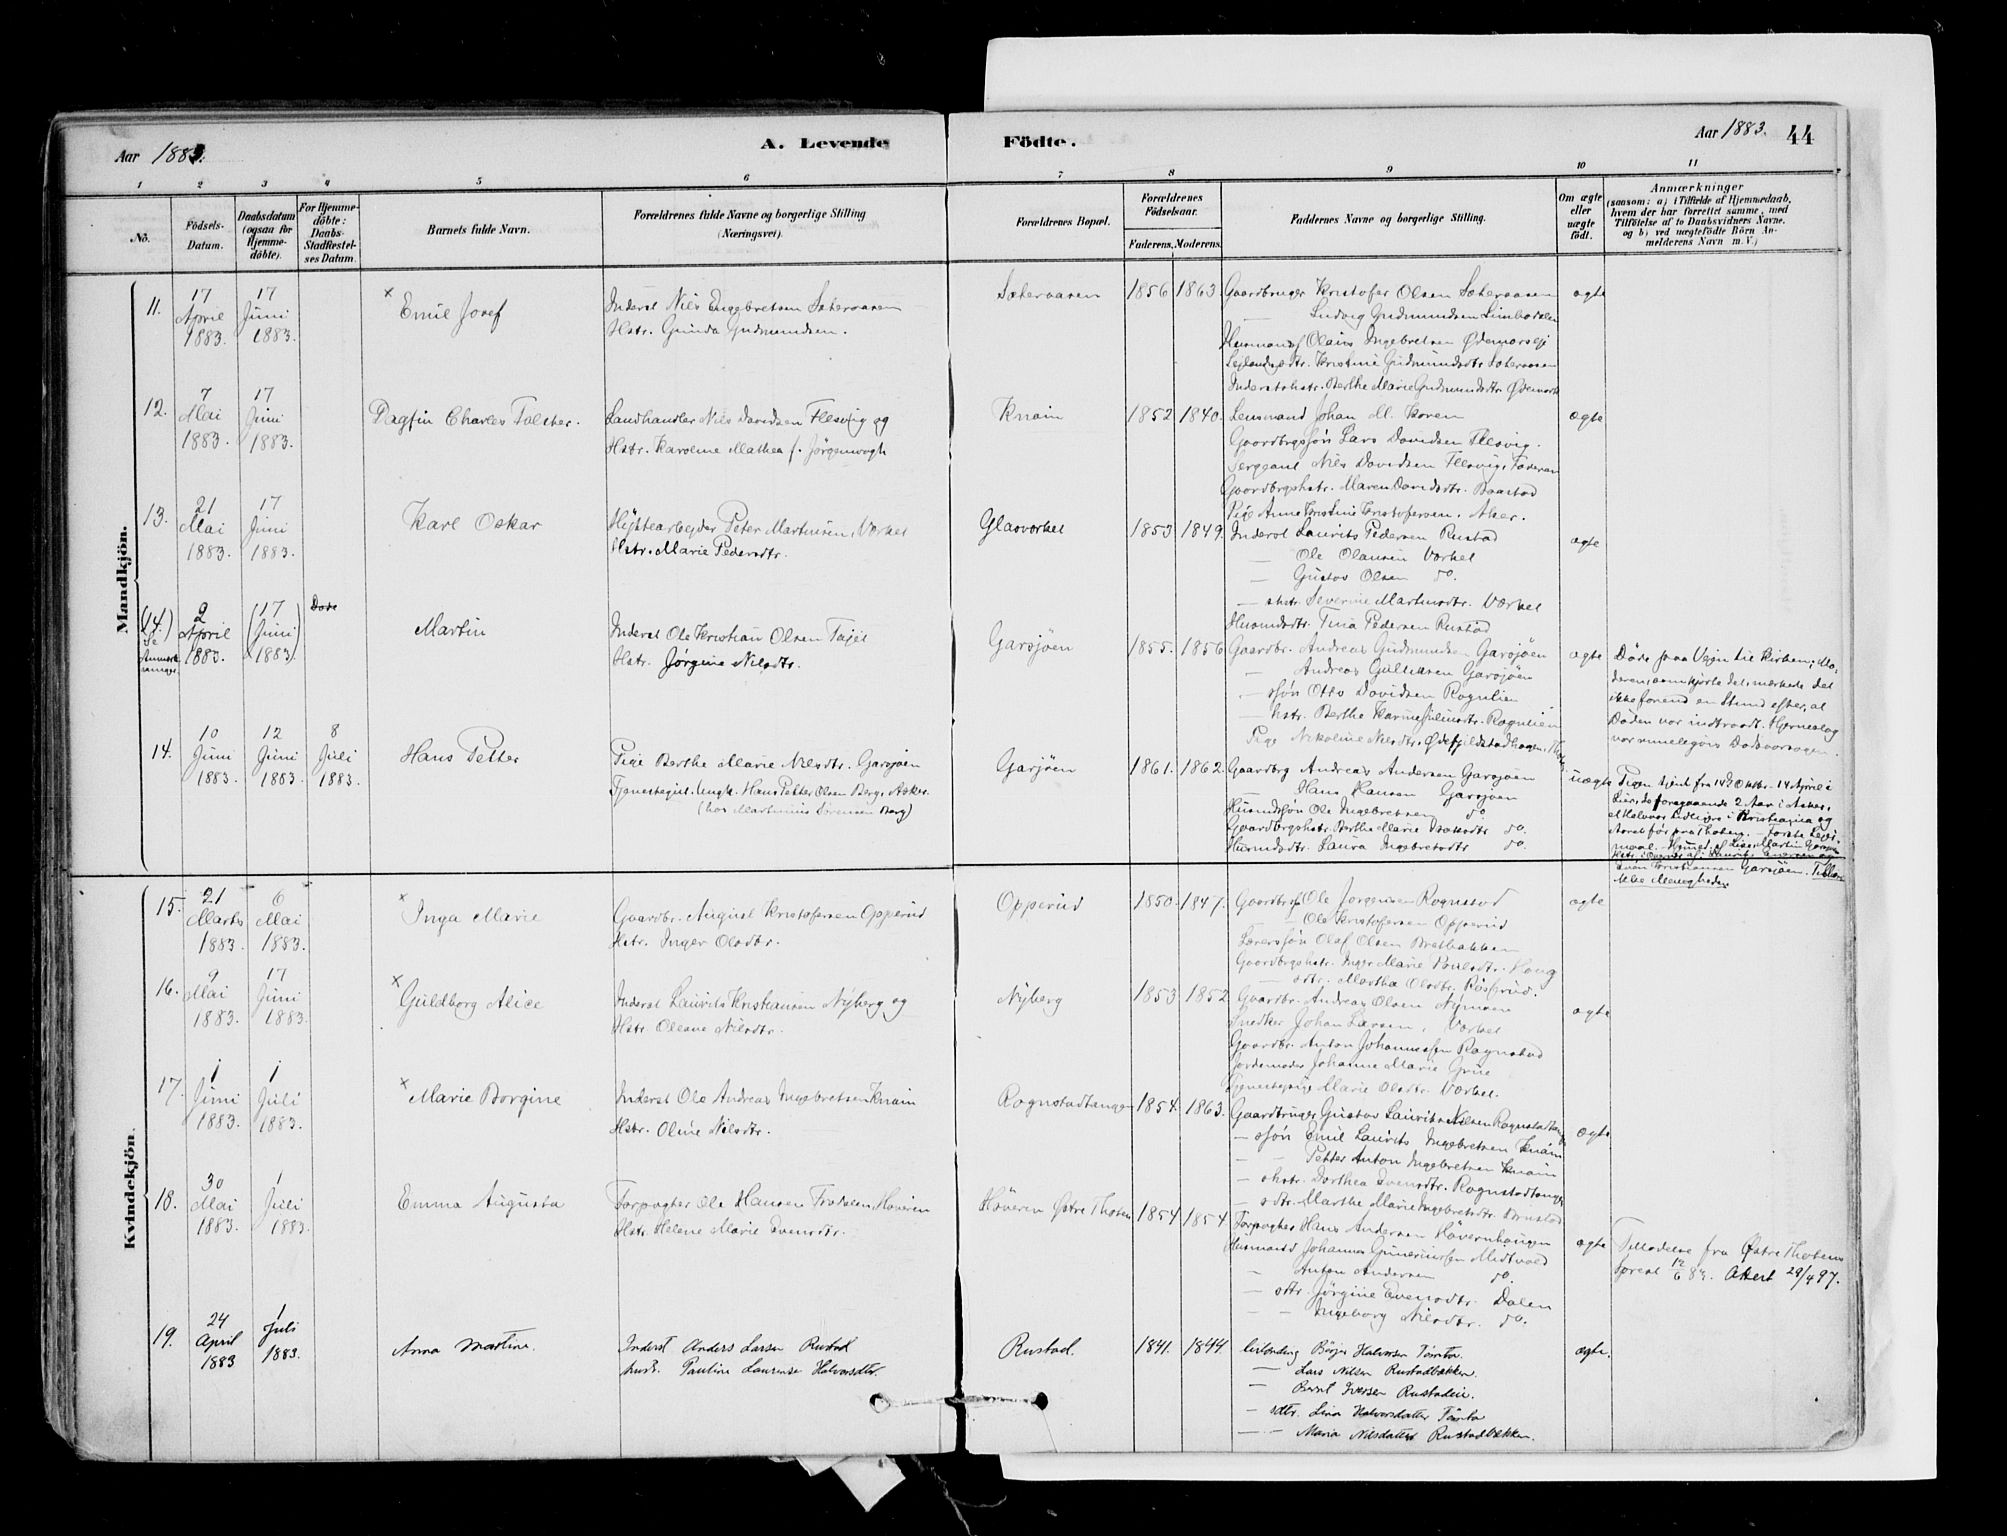 Aar 1883.
A. Levende
Födte.
Aar 1883.
44
1 2 3 4 5 6 7 8 9 10 11
No.
Födsels-
Datum.
Daabsdatum
(ogsaa for
Hjemme-
döbte).
For Hjemme-
döbte:
Daabs-
Stadfæstel-
ses Datum.
Barnets fulde Navn.
Forældrenes fulde Navne og borgerlige Stilling
(Næringsvei).
Forældrenes Bopæl.
Forældrenes
Födselsaar.
Faderens. Moderens.
Faddernes Navne og borgerlige Stilling.
Om ægte
eller
uægte
födt.
Anmærkninger
(saasom: a) i Tilfælde af Hjemmedaab,
hvem der har forrettet samme, med
Tilföielse af to Daabsvidners Navne,
og b) ved uægtefödte Börn An-
melderens Navn m. V.)
Mandkjön.
11.
17
April
1883.
17
Juni
1883.
× Emil Josef
Inderst Nils Engebretsen Sæteraasen
Hstr. Gunda Gudmundsen.
Sæteraasen
1856
1863.
Gaardbruger Kristofer Olsen Sæteraasen
— Ludvig Gudmundsen
Husmand Olaus Ingebretsen
Kristine Gudmundsdtr. Sæteraasen
Inderst hstr. Berthe Marie Gudmundsdtr.
ægte
12.
7
Mai
1883.
17
Juni
1883.
Dagfin Charles Falster.
Landhandler Nils Davidsen Flesvig og
Hstr. Karoline Mathea f. Jörgenvogh
Knain
1852
1840.
Lensmand Johan M. Koren
Gaardbrgssön Lars Davidsen Flesvig.
Sergeant Nils Davidsen Flesvig, Faderen
Gaardbrgshstr. Maren Davidsdtr. Baastad
Pige Anne Kristine Kristofersen, Aker.
ægte
13.
21
Mai
1883.
17
Juni
1883.
Karl Oskar
Hyttearbejder Peter Martinsen, Værket
Hstr. Marie Pedersdtr.
Glasværket
1853
1849.
Inderst Laurits Pedersen Rustad
— Ole Olausen Værket
— Gustav Olsen do.
— shstr. Severine Martinsdtr. Værket
Husmdsdtr. Tina Pedersen Rustad
ægte
(14.)
Se
Anmærk
ninger
2
April
1883.
(17
Juni
1883)
Døde
Martin
Inderst Ole Kristian Olsen Tajet
Hstr. Jørgine Nilsdtr.
Garsjöen
1855.
1856
Gaardbr. Andreas Gudmundsen Garsjöen
— Andreas Gulliksen Garsjöen
— ssön Otto Davidsen Rognlien
— hstr. Berthe Karine Juliusdtr. Rognlien
Pige Nikoline Nilsdtr.
ægte
Døde paa Vejen til Kirken; Mo-
deren, som kjørte det, mærkede det
ikke førend en Stund efter, at
Døden var indtraadt. Hjerneslag
var rimeligvis Dødsaarsagen.
14.
10
Juni
1883.
12
Juni
1883.
8
Juli
1883.
Hans Petter
Pige Berthe Marie Nilsdtr. Garsjøen
Tjenestegut. Ungk. Hans Petter Olsen Berg, Asker.
(hos Martinius Sörensen Berg)
Garjöen
1861.
1862.
Gaardbrg Andreas Andersen Garsjøen
— Hans Hansen Garsjøen
Husmdssön Ole Ingebretsen do
Gaardbrgshstr. Berthe Marie Isaksdtr do.
Husmdsdtr. Laura Ingebretsdtr do.
uægte
Pigen tjent fra 14de Oktbr. - 14 April i
Lier, de foregaaende 2 Aar i Asker,
et Halvaar tidligere i Kristiania og
Aaret før paa Thoten. — Første Lejer-
maal.
Kvindekjön.
15.
21
Marts
1883.
6
Mai
1883.
× Inga Marie
Gaardbr. August Kristofersen Opperud
Hstr. Inger Olsdtr.
Opperud
1850.
1847.
Gaardbr. Ole Jørgensen Rognstad
— Ole Kristofersen Opperud
Lærerssön Olaf Olsen Bretbakken
Gaardbrgshstr. Inger Marie Paulsdtr. Haug
— sdtr. Martha Olsdtr.
ægte
16.
9
Mai
1883.
17
Juni
1883.
× Guldborg Alice
Inderst Laurits Kristiansen Nyberg og
Hstr. Oleane Nilsdtr.
Nyberg
1853
1852
Gaardbr. Andreas Olsen Nymoen
Snedker Johan Larsen, Værket
Gaardbr. Anton Johannessen Rognstad
Jordemoder Johanne Marie Grue
Tjenestepige Marie Olsdtr. Værket.
ægte
17.
1
Juni
1883.
1
Juli
1883.
× Marie Borgine
Inderst Ole Andreas Ingebretsen Knain
Hstr. Oline Nilsdtr.
Rognstadtangen
1854.
1863.
Gaardbruger Gustav Laurits Nilsen Rognstadtangen
— ssön Emil Laurits Ingebretsen Knain
— — Petter Anton Ingebretsen Knain
— shstr. Dorthea Svensdtr. Rognstadtangen
— sdtr. Marthe Marie Ingebretsdtr.
ægte
18.
30
Mai
1883.
1
Juli
1883.
Emma Augusta
Forpagter Ole Hansen Höveren
Hstr. Helene Marie Evensdtr.
Höveren Østre Thoten
1854
1854.
Forpagter Hans Andersen Høvernhaugen
Husmand Johannes Gunerussen Midtvold
— Anton Andersen do.
— sdtr. Jørgine Evensdtr. Dalen
— — Ingeborg Nilsdtr. do.
ægte
Tilladelse fra Østre Thotens
Sprest 12/6 83. Attest 29/4 97.
19.
24
April
1883
1
Juli
1883.
Anna Martine.
Inderst Anders Larsen Rustad
hustr. Pauline Laurense Halvorsdtr.
Rustad.
1841.
1844
Børger Halvorsen Tømta
— Lars Nilsen Rustadbækken
— Bernt Iversen Rustadeie.
— sdtr. Lina Halvorsdatter Tømta
— — Maria Nilsdatter Rustadbækken.
ægte.